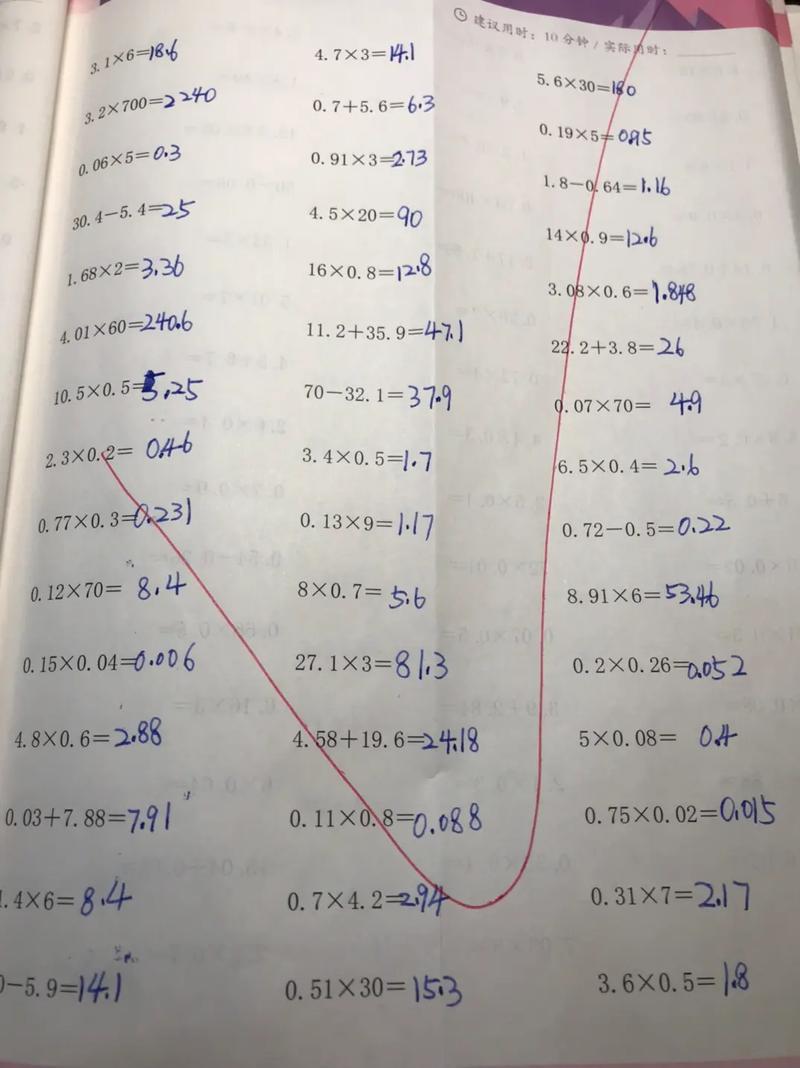 建议用时：10分钟/实际用时：
3.1×6=18.6
3.2×700=2240
0.06×5=0.3
30.4-5.4=25
1.68×2=3.36
4.01×60=240.6
10.5×0.5=5.25
2.3×0.2=0.46
0.77×0.3=0.231
0.12×70=8.4
0.15×0.04=0.006
4.8×0.6=2.88
0.03+7.88=7.91
.4×6=8.4
-5.9=14.1
4.7×3=14.1
0.7+5.6=6.3
0.91×3=2.73
4.5×20=90
16×0.8=12.8
11.2+35.9=47.1
70-32.1=37.9
3.4×0.5=1.7
0.13×9=1.17
8×0.7=5.6
27.1×3=81.3
4.58+19.6=24.18
0.11×0.8=0.088
0.7×4.2=2.94
0.51×30=15.3
5.6×30=180
0.19×5=0.95
1.8-0.64=1.16
14×0.9=12.6
3.08×0.6=1.848
22.2+3.8=26
0.07×70=4.9
6.5×0.4=2.6
0.72-0.5=0.22
8.91×6=53.46
0.2×0.26=0.052
5×0.08=0.4
0.75×0.02=0.015
0.31×7=2.17
3.6×0.5=1.8